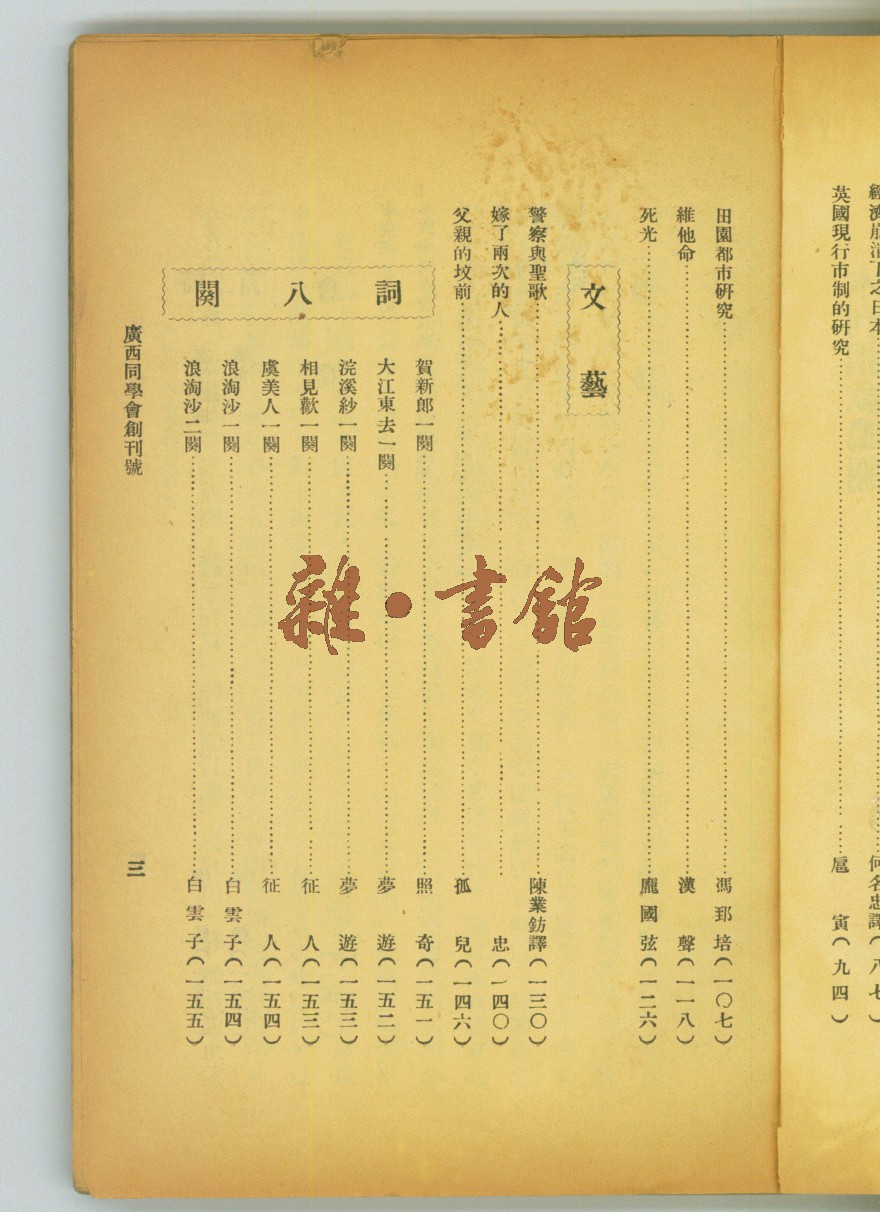 何名忠譯(八七)
英國現行市制的研究 扈寅(九四)
田園都市研究 馮郅培(一〇七)
維他命 漢聲(一一八)
死光 龐國弦(一二六)
文藝
警察與聖歌 陳業鈁譯(一三〇)
嫁了兩次的人 忠(一四〇)
父親的坟前 孤兒(一四六)
詞八闋
賀新郎一闋 照奇(一五一)
大江東去一闋 夢遊(一五二)
浣溪紗一闋 夢遊(一五三)
相見歡一闋 征人(一五三)
虞美人一闋 征人(一五四)
浪淘沙一闋 白雲子(一五四)
浪淘沙二闋 白雲子(一五五)
廣西同學會創刊號
三
雜·書館